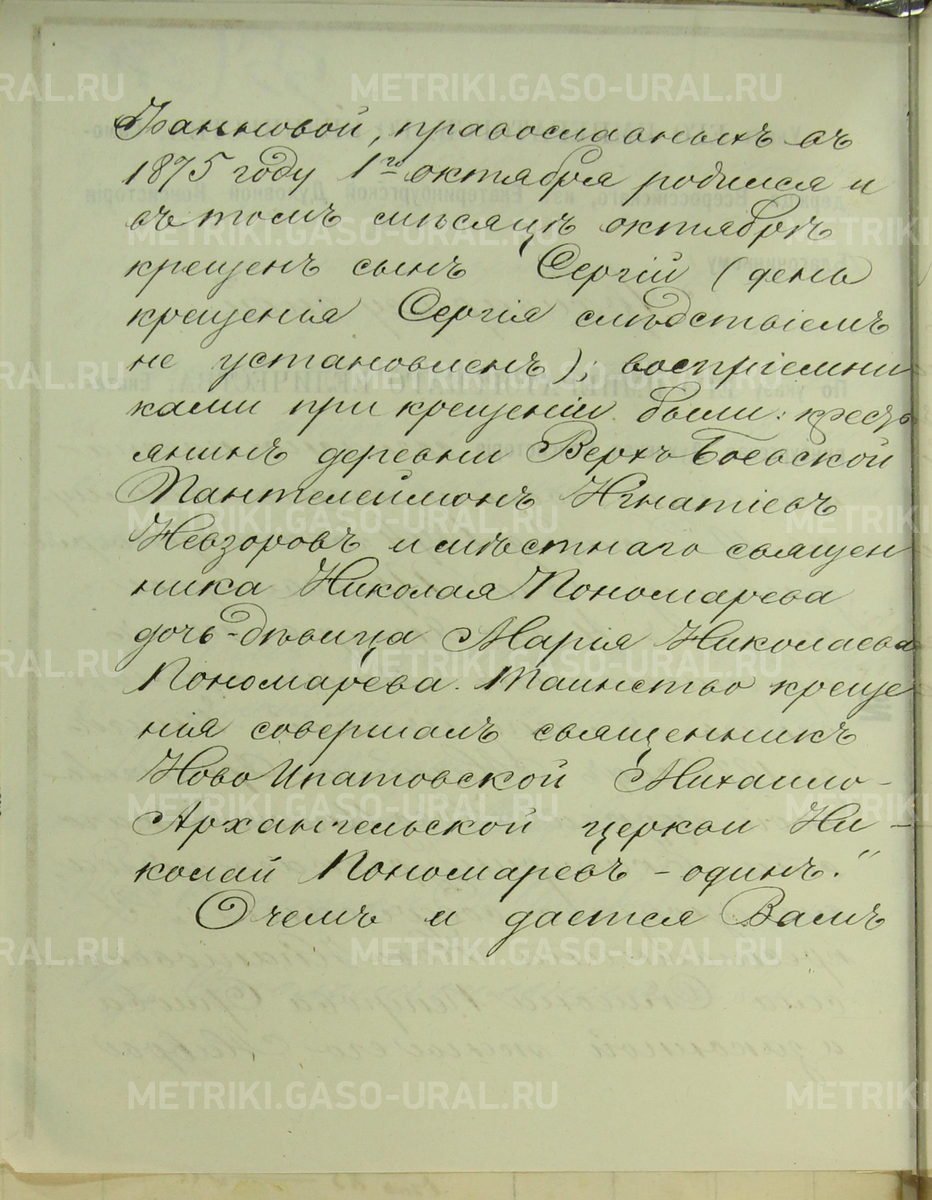 Ивановой, православныхъ въ
1875 году 1го октября родился и
въ томъ мѣсяцѣ октябрѣ
крещенъ сынъ Сергій (день
крещенія Сергія слѣдствіемъ
не установленъ); воспріемни
ками при крещеніи были: кресть
янинъ деревни Верхъ-Боевской
Пантелеимонъ Игнатіевъ
Невзоровъ и мѣстнаго священ
ника Николая Пономарева
дочь-дѣвица Марія Николаева
Пономарева. Таинство креще
нія совершалъ священникъ
Ново Ипатовской Михаило-
Архангельской церкви Ни-
колай Пономаревъ - одинъ."
О чемъ и дается Вамъ
METRIKI.GASO-URAL.RU